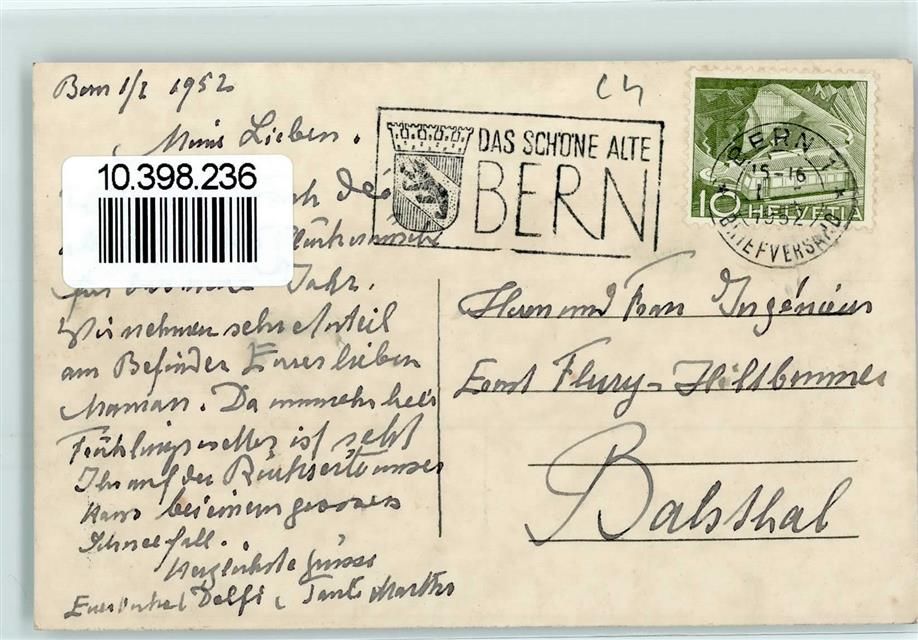 Bern 1/I 1952
Ch
Meine Lieben.
DAS SCHÖNE ALTE
BERN
BERN 1
15-16
1952
BRIEFVERSAND
10 HELVETIA
10.398.236
Jahr.
Wir nehmen sehr Anteil
am Befinden Eurer lieben
Maman. Da nunmehr kein
Frühlingswetter ist seht
Ihr auf der Rückseite unser
Haus bei einem grossen
Schneefall.
Herzlichste Grüsse
Euer Onkel Delfi u. Tante Martha
Herrn und Frau Ingénieur
Ernst Flury-Hiltbrunner
Balsthal